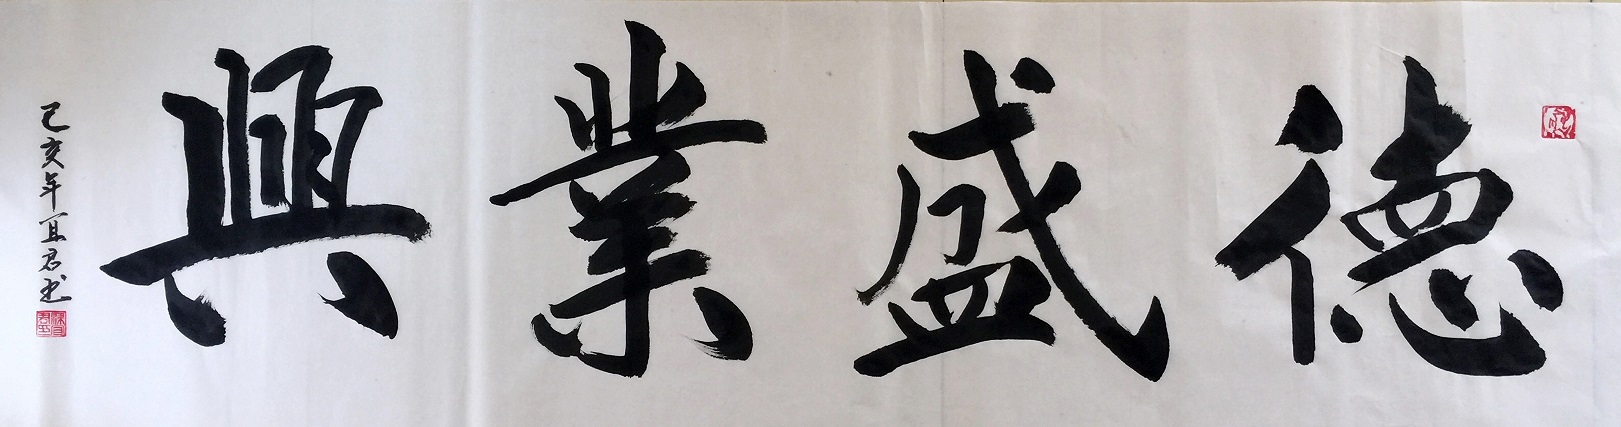 德盛業興
己亥年宜君书